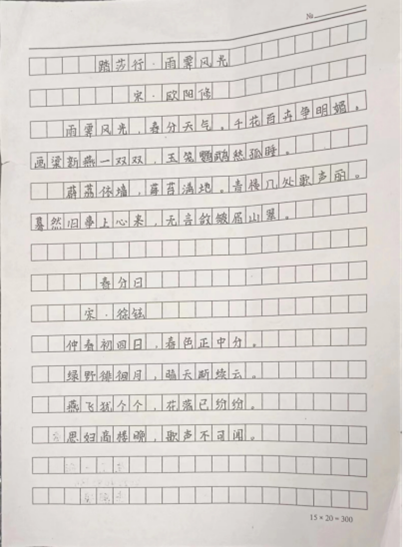 №
踏莎行·雨霁风光
宋·欧阳修
雨霁风光，春分天气。千花百卉争明媚。
画梁新燕一双双，玉笼鹦鹉愁孤睡。
薜荔依墙，莓苔满地。青楼几处歌声丽。
蓦然旧事上心来，无言敛皱眉山翠。
春分日
宋·徐铉
仲春初四日，春色正中分。
绿野徘徊月，晴天断续云。
燕飞犹个个，花落已纷纷。
思妇高楼晚，歌声不可闻。
15×20=300